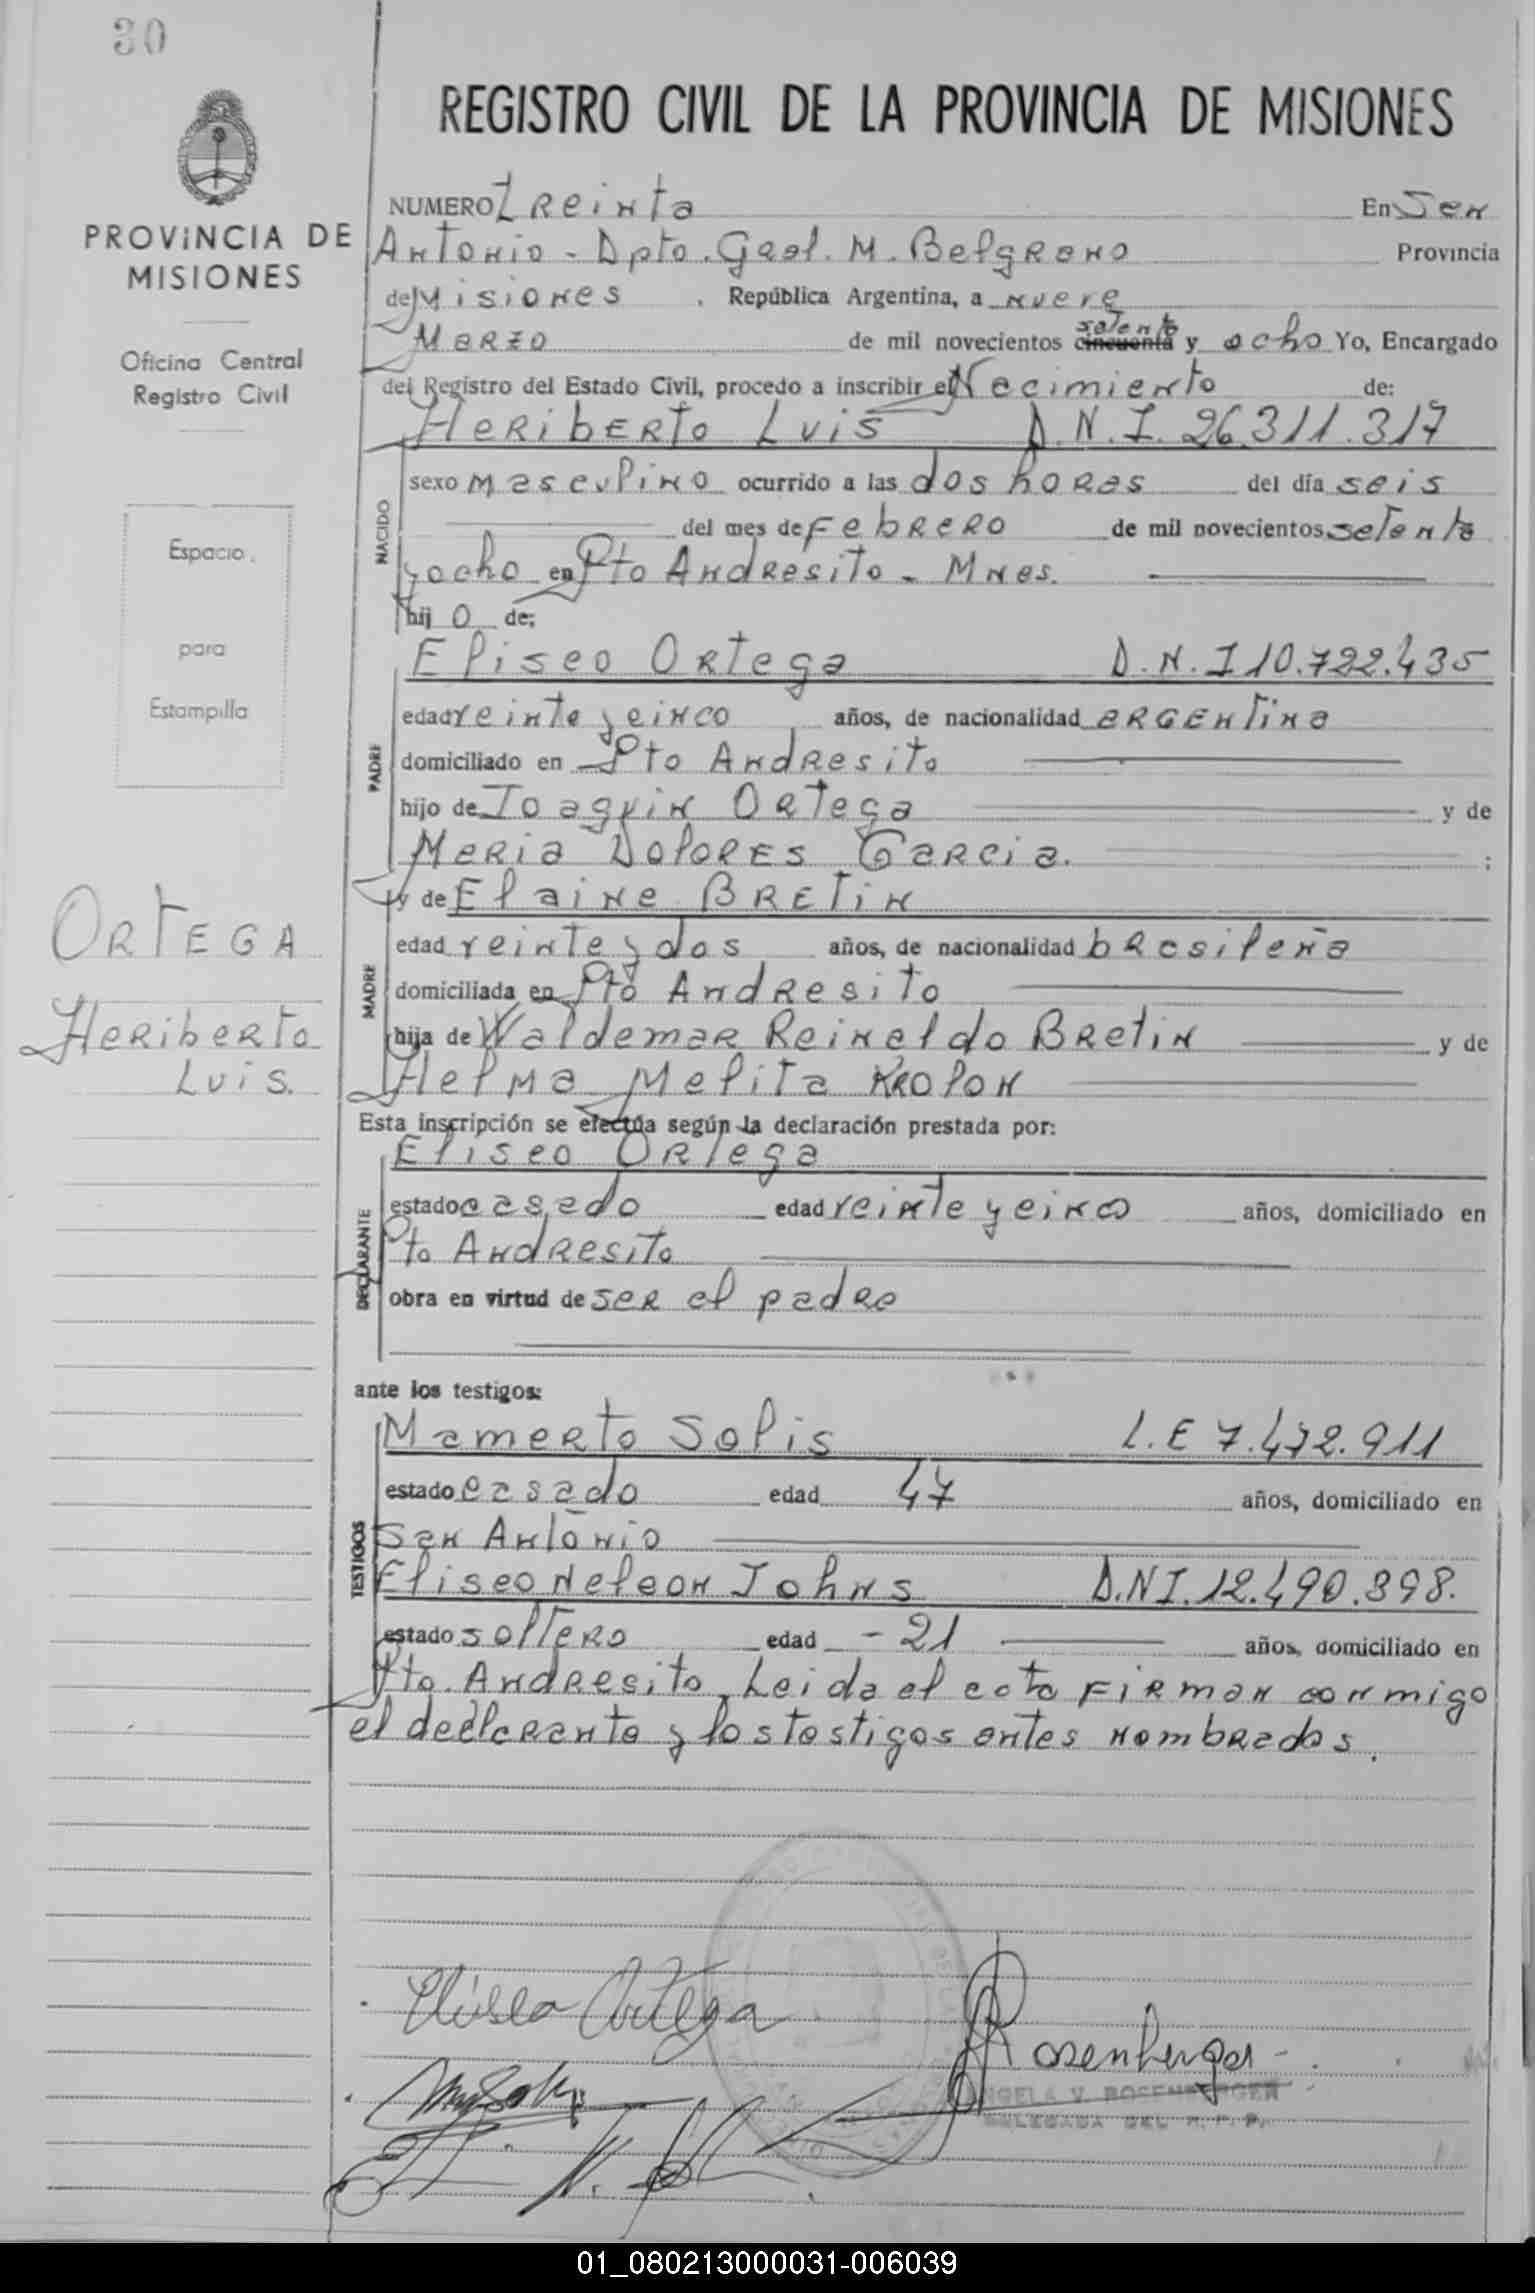 30
PROVINCIA DE
MISIONES
Oficina Central
Registro Civil
Espacio
para
Estampilla
ORTEGA
Heriberto
Luis.
REGISTRO CIVIL DE LA PROVINCIA DE MISIONES
NUMERO Treinta En San
Antonio - Dpto. Gral. M. Belgrano Provincia
de Misiones , República Argentina, a nueve
Marzo de mil novecientos cincuenta setenta y ocho Yo, Encargado
del Registro del Estado Civil, procedo a inscribir el Nacimiento de:
Heriberto Luis D.N.I. 26.311.317
NACIDO
sexo masculino ocurrido a las dos horas del día seis
del mes de Febrero de mil novecientos setenta
y ocho en Pto Andresito - Mnes.
hijo de:
PADRE
Eliseo Ortega D.N.I 10.722.435
edad veinte y cinco años, de nacionalidad argentina
domiciliado en Pto Andresito
hijo de Joaquin Ortega y de
Maria Dolores Garcia. ;
MADRE
y de Elaine Bretin
edad veinte y dos años, de nacionalidad brasileña
domiciliada en Pto Andresito
hija de Waldemar Reinaldo Bretin y de
Helma Melita Krolon
Esta inscripción se efectúa según la declaración prestada por:
DECLARANTE
Eliseo Ortega
estado casado edad veinte y cinco años, domiciliado en
Pto Andresito
obra en virtud de ser el padre
ante los testigos:
TESTIGOS
Mamerto Solis L.E 7.472.911
estado casado edad 47 años, domiciliado en
San Antonio
Eliseo Nelson Johns D.NI. 12.490.898.
estado soltero edad - 21 años, domiciliado en
Pto. Andresito. Leida el acta firman conmigo
el declarante y los testigos antes nombrados.
Eliseo Ortega
Rosenberger
ANGELA V. ROSENBERGER
DELEGADA DEL R.P.P.
01_080213000031-006039